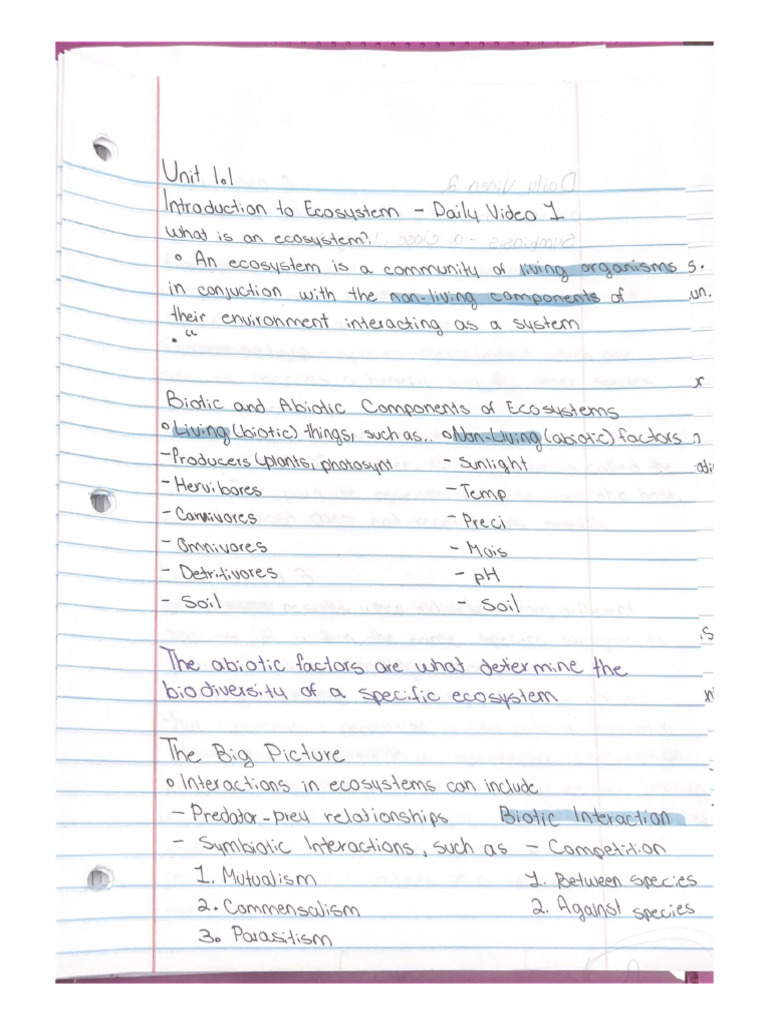 Unit 1.1
Introduction to Ecosystem - Daily Video 1
What is an ecosystem?
o An ecosystem is a community of living organisms
in conjuction with the non-living components of
their environment interacting as a system
• "
Biotic and Abiotic Components of Ecosystems
o Living (biotic) things, such as.. o Non-Living (abiotic) factors
- Producers (plants, photosynt - Sunlight
- Hervibores - Temp
- Carnivores - Preci
- Omnivores - Mois
- Detritivores - pH
- Soil - Soil
The abiotic factors are what determine the
biodiversity of a specific ecosystem
The Big Picture
o Interactions in ecosystems can include
- Predator-prey relationships Biotic Interaction
- Symbiotic Interactions, such as - Competition
1. Mutualism 1. Between species
2. Commensalism 2. Against species
3. Parasitism